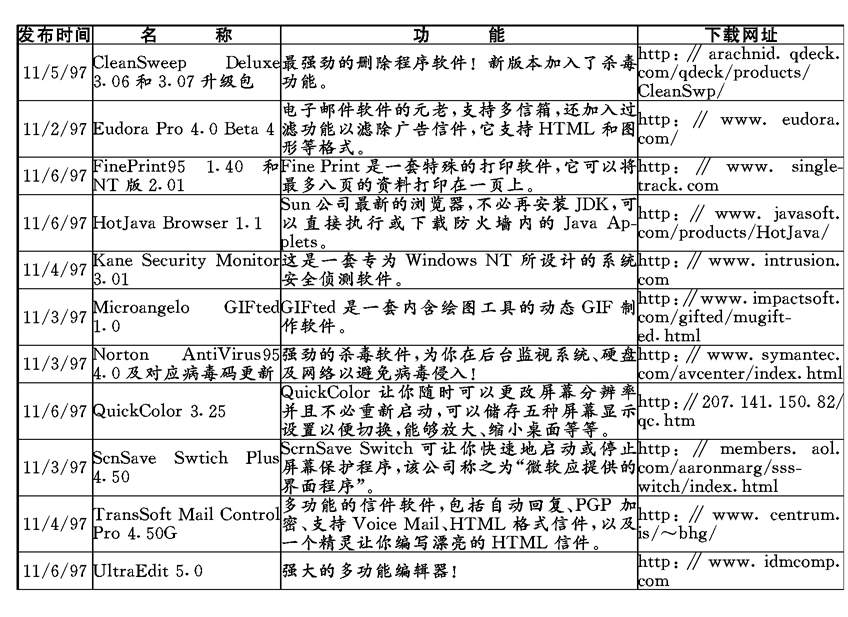 发布时间 名 称 功 能 下载网址
11/5/97
CleanSweep Deluxe
3.06 和 3.07 升级包
最强劲的删除程序软件！新版本加入了杀毒
功能。
http：// arachnid. qdeck.
com/qdeck/products/
CleanSwp/
11/2/97
Eudora Pro 4.0 Beta 4
电子邮件软件的元老,支持多信箱,还加入过
滤功能以滤除广告信件,它支持 HTML 和图
形等格式。
http：// www. eudora.
com/
11/6/97
FinePrint95 1.40 和
NT 版 2.01
Fine Print 是一套特殊的打印软件,它可以将
最多八页的资料打印在一页上。
http：// www. single-
track.com
11/6/97
HotJava Browser 1.1
Sun 公司最新的浏览器,不必再安装 JDK,可
以直接执行或下载防火墙内的 Java Ap-
plets。
http：// www. javasoft.
com/products/HotJava/
11/4/97
Kane Security Monitor
3.01
这是一套专为 Windows NT 所设计的系统
安全侦测软件。
http：// www. intrusion.
com
11/3/97
Microangelo GIFted
1.0
GIFted 是一套内含绘图工具的动态 GIF 制
作软件。
http：//www.impactsoft.
com/gifted/mugift-
ed.html
11/3/97
Norton AntiVirus95
4.0 及对应病毒码更新
强劲的杀毒软件,为你在后台监视系统、硬盘
及网络以避免病毒侵入！
http：// www. symantec.
com/avcenter/index.html
11/6/97
QuickColor 3.25
QuickColor 让你随时可以更改屏幕分辨率
并且不必重新启动,可以储存五种屏幕显示
设置以便切换,能够放大、缩小桌面等等。
http：//207.141.150.82/
qc.htm
11/3/97
ScnSave Swtich Plus
4.50
ScrnSave Switch 可让你快速地启动或停止
屏幕保护程序,该公司称之为“微软应提供的
界面程序”。
http：// members. aol.
com/aaronmarg/sss-
witch/index.html
11/4/97
TransSoft Mail Control
Pro 4.50G
多功能的信件软件,包括自动回复、PGP 加
密、支持 Voice Mail、HTML 格式信件,以及
一个精灵让你编写漂亮的 HTML 信件。
http：// www. centrum.
is/～bhg/
11/6/97
UltraEdit 5.0
强大的多功能编辑器！
http：// www. idmcomp.
com